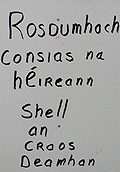 Rosdumhach
Consias na
hÉireann
Shell
an
Craos
Deamhan